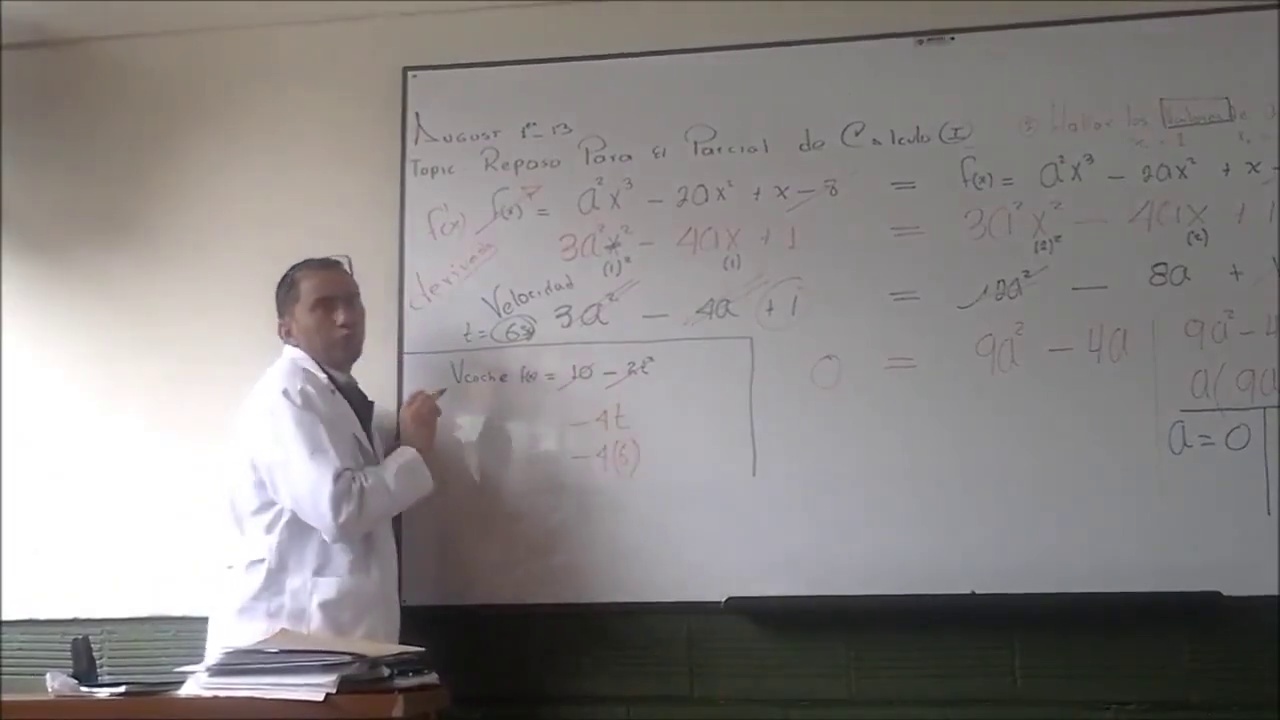 August 1ro - 13
Topic. Repaso Para El Parcial de Calculo (I)
Hallar los Valores de
x = 1
f'(x) f(x) = a²x³ - 2ax² + x - 8 = f(x) = a²x³ - 2ax² + x -
derivada
3a²x² - 4ax + 1 = 3a²x² - 4ax + 1
(1)² (1) (2)² (2)
Velocidad 3a² - 4a + 1 = 12a² - 8a +
t = 6s
0 = 9a² - 4a
9a² - 4
a(9a
a = 0
Vcoche f(x) = 10 - 2t²
-4t
-4(6)